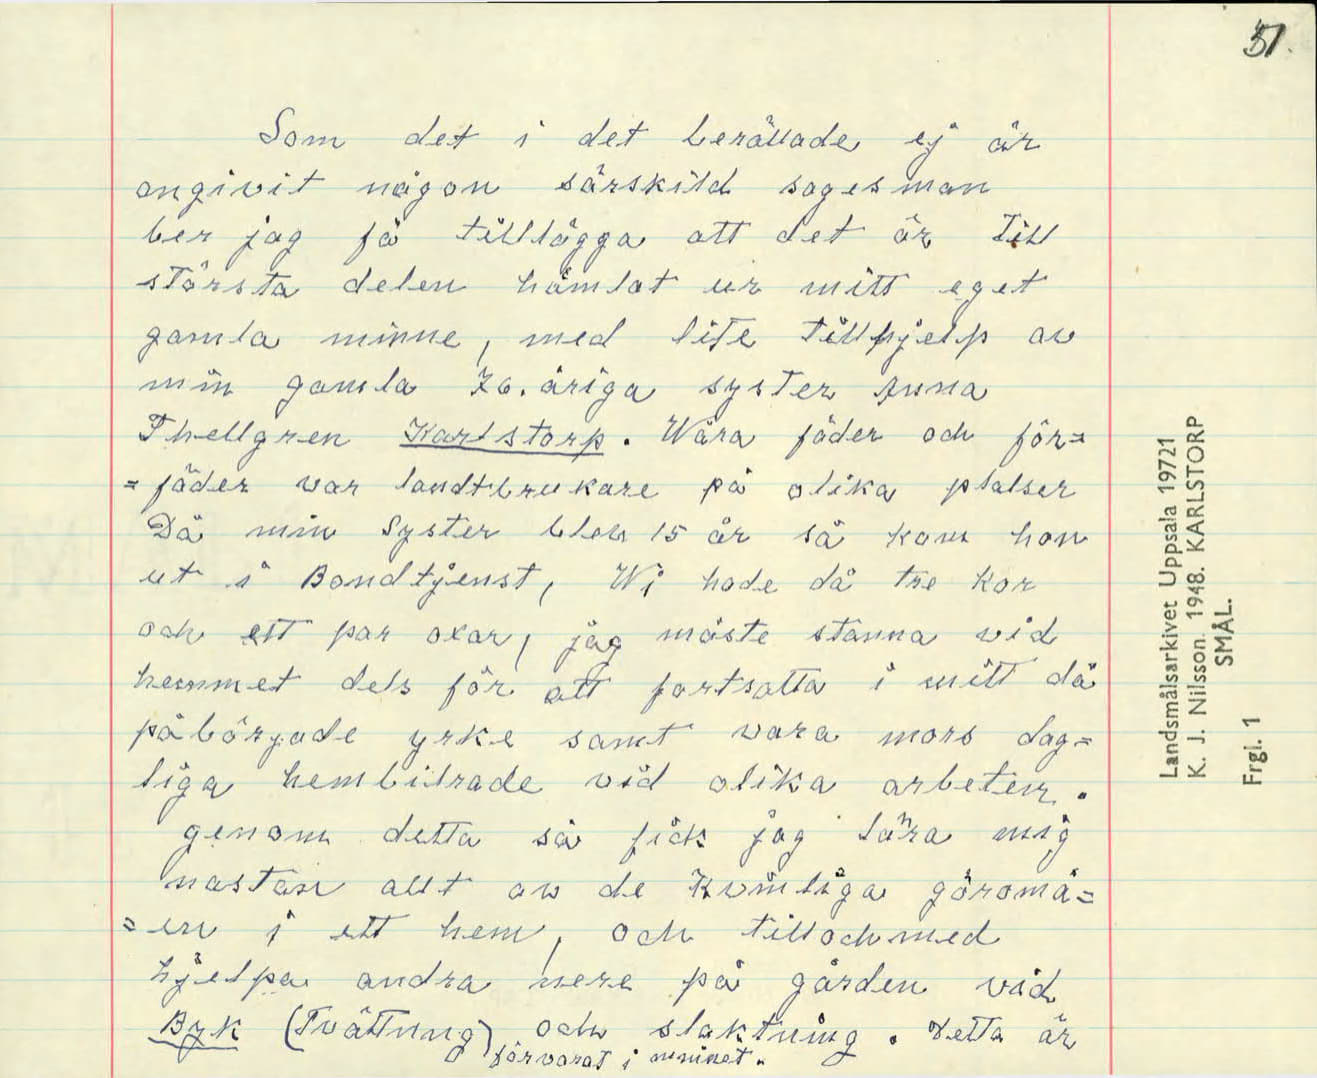 51.
Som det i det berättade ej är
angivit någon särskild sagesman
ber jag få tillägga att det är Till
största delen hämtat ur mitt eget
gamla minne, med lite Tillhjelp av
min gamla 76.åriga syster Anna
Thellgren Karlstorp. Wåra fäder och för=
=fäder var landtbrukare på olika platser
Då min Syster blev 15 år så kom hon
ut i Bondtjenst, Wi hade då tre Kor
och ett par oxar, jag måste stanna vid
hemmet dels för att fortsatta i mitt då
påbörjade yrke samt vara mors dag=
liga hembiträde vid olika arbeten.
genom detta så fick jag lära mig
nastan allt av de Kvinliga göromå=
=en i ett hem, och tillochmed
hjelpa andra nere på gården vid
Byk (Tvättning) och slaktning. Detta är
förvarat i minnet.
Landsmålsarkivet Uppsala 19721
K. J. Nilsson. 1948. KARLSTORP
SMÅL.
Frgl. 1